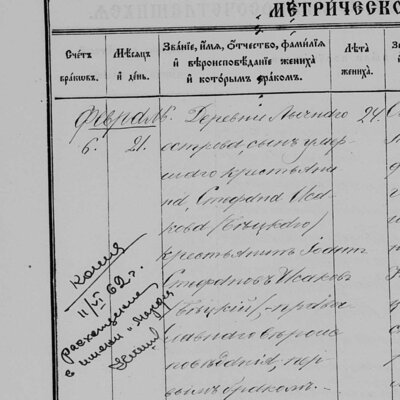 МЕТРИЧЕСКО
Счетъ браковъ.
Мѣсяцъ и день.
Званіе, имя, отчество, фамилія и вѣроисповѣданіе жениха и которымъ бракомъ.
Лѣта жениха.
Февраль.
6.
21.
Деревни Лычнаго
острова, сынъ умер
шаго крестьяни
на, Стефана Иса
кова /Бѣцкаго/
крестьянинъ Іоаннъ
Стефановъ Исаковъ
/Бѣцкій/, - право
славнаго вѣроис
повѣданія, пер
вымъ бракомъ.
24.
Копия
11/VI 62 г.
Расхождение
в имени